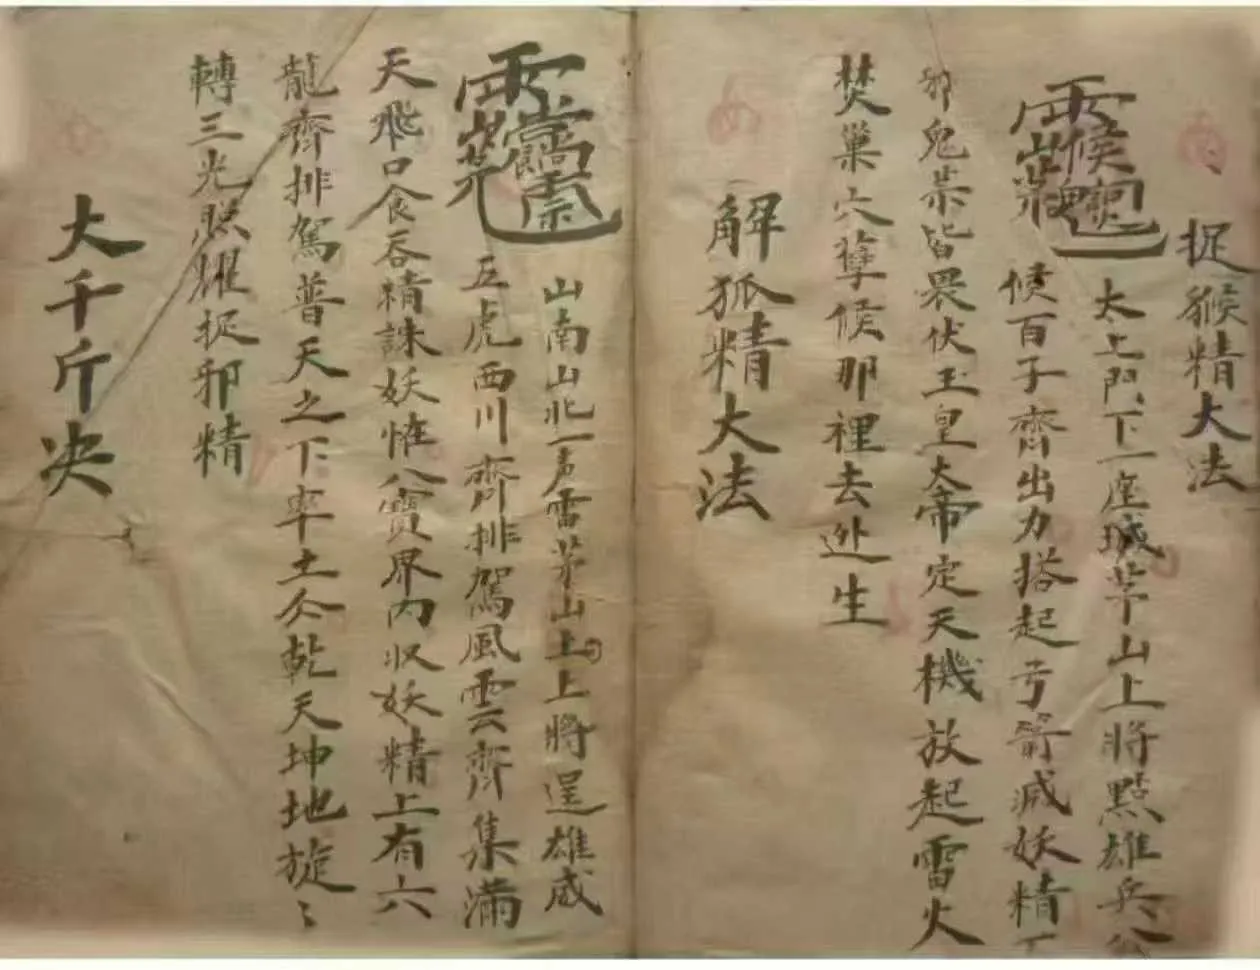 捉猴精大法
太上門下一座城茅山上將點雄兵
候百子齊出力搭起弓箭滅妖精
邪鬼祟皆畏伏玉皇大帝定天機放起雷火
焚巢穴孽候那裡去逃生
解狐精大法
山南山北一声雷茅山上上將逞雄威
五虎西川齊排駕風雲齊集滿
天飛口食吞精誅妖怪八寶界内収妖精上有六
龍齊排駕普天之下率土仒乾天坤地旋〻
轉三光照耀捉邪精
大千斤决